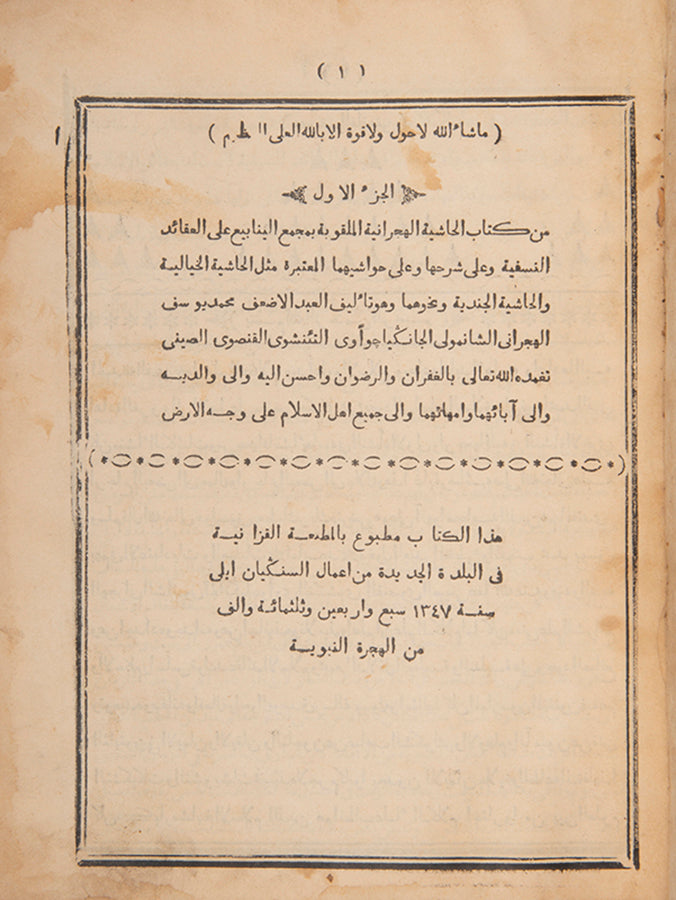 ( ١ )
( ماشاء الله لا حول ولا قوة الا بالله العلى العظيم )
١
الجزء الاول
من كتاب الحاشية الهجرانية الملقوبة بمجمع الينابيع على العقائد
النسفية وعلى شرحها وعلى حواشيهما المعتبرة مثل الحاشية الخيالية
والحاشية الجندية ونحوهما وهو تاءليف العبد الاضعف محمد يوسف
الهجرانى الشانمولى الجانكياچوأوى التئنشوى القنصوى الصينى
تغمده الله تعالى بالغفران والرضوان واحسن اليه والى والديه
والى آبائهما وامهاتهما والى جميع اهل الاسلام على وجه الارض
هذا الكتاب مطبوع بالمطبعة القزانية
فى البلدة الجديدة من اعمال السنڭيان ايلى
سنة ١٣٤٧ سبع واربعين وثلثمائة والف
من الهجرة النبوية